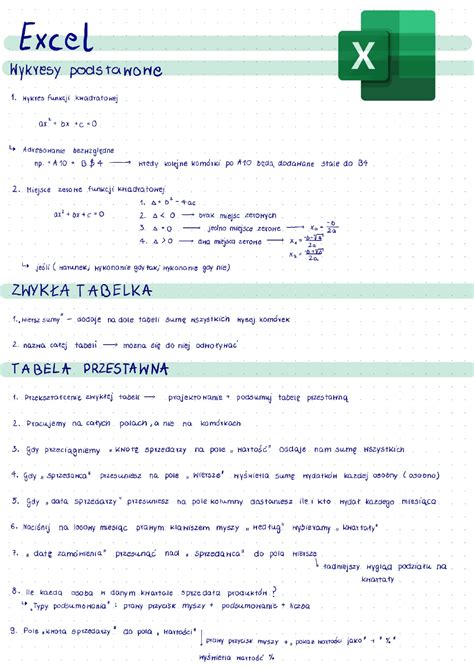 Excel
X
Wykresy podstawowe
1. Wykres funkcji kwadratowej
ax² + bx + c = 0
↳ Adresowanie bezwzględne
np. = A10 + B$4 → wtedy kolejne komórki po A10 będą dodawane stale do B4
2. Miejsce zerowe funkcji kwadratowej
ax² + bx + c = 0
1. Δ = b² - 4ac
2. Δ < 0 → brak miejsc zerowych
3. Δ = 0 → jedno miejsce zerowe → x₀ = -b/2a
4. Δ > 0 → dwa miejsca zerowe → x₁ = -b-√Δ/2a
x₂ = -b+√Δ/2a
↳ jeśli (warunek; wykonanie gdy tak; wykonanie gdy nie)
ZWYKŁA TABELKA
1. „wiersz sumy" - dodaje na dole tabeli sumę wszystkich wyżej komórek
2. nazwa całej tabeli → można się do niej odwoływać
TABELA PRZESTAWNA
1. Przekształcenie zwykłej tabeli → projektowanie + podsumuj tabelę przestawną
2. Pracujemy na całych polach, a nie na komórkach
3. Gdy przeciągniemy „kwotę sprzedaży na pole „wartość" oddaje nam sumę wszystkich
4. Gdy „sprzedawca" przesuniesz na pole „wiersze" wyświetla sumę wydatków każdej osobny (osobno)
5. Gdy „data sprzedaży" przesuniesz na pole kolumny dostaniesz ile i kto wydał każdego miesiąca
6. Naciśnij na losowy miesiąc prawym klawiszem myszy „według" wybieramy „kwartały"
7. „datę zamówienia" przesunąć nad „sprzedawca" do pola wiersze
↳ ładniejszy wygląd podziału na kwartały
8. Ile każda osoba w danym kwartale sprzedała produktów?
↳ „Typy podsumowania": prawy przycisk myszy + podsumowanie + liczba
9. Pole „kwota sprzedaży" do pola „wartości"
↳ prawy przycisk myszy +, pokaż wartości jako" + "%"
wyświetla wartość %